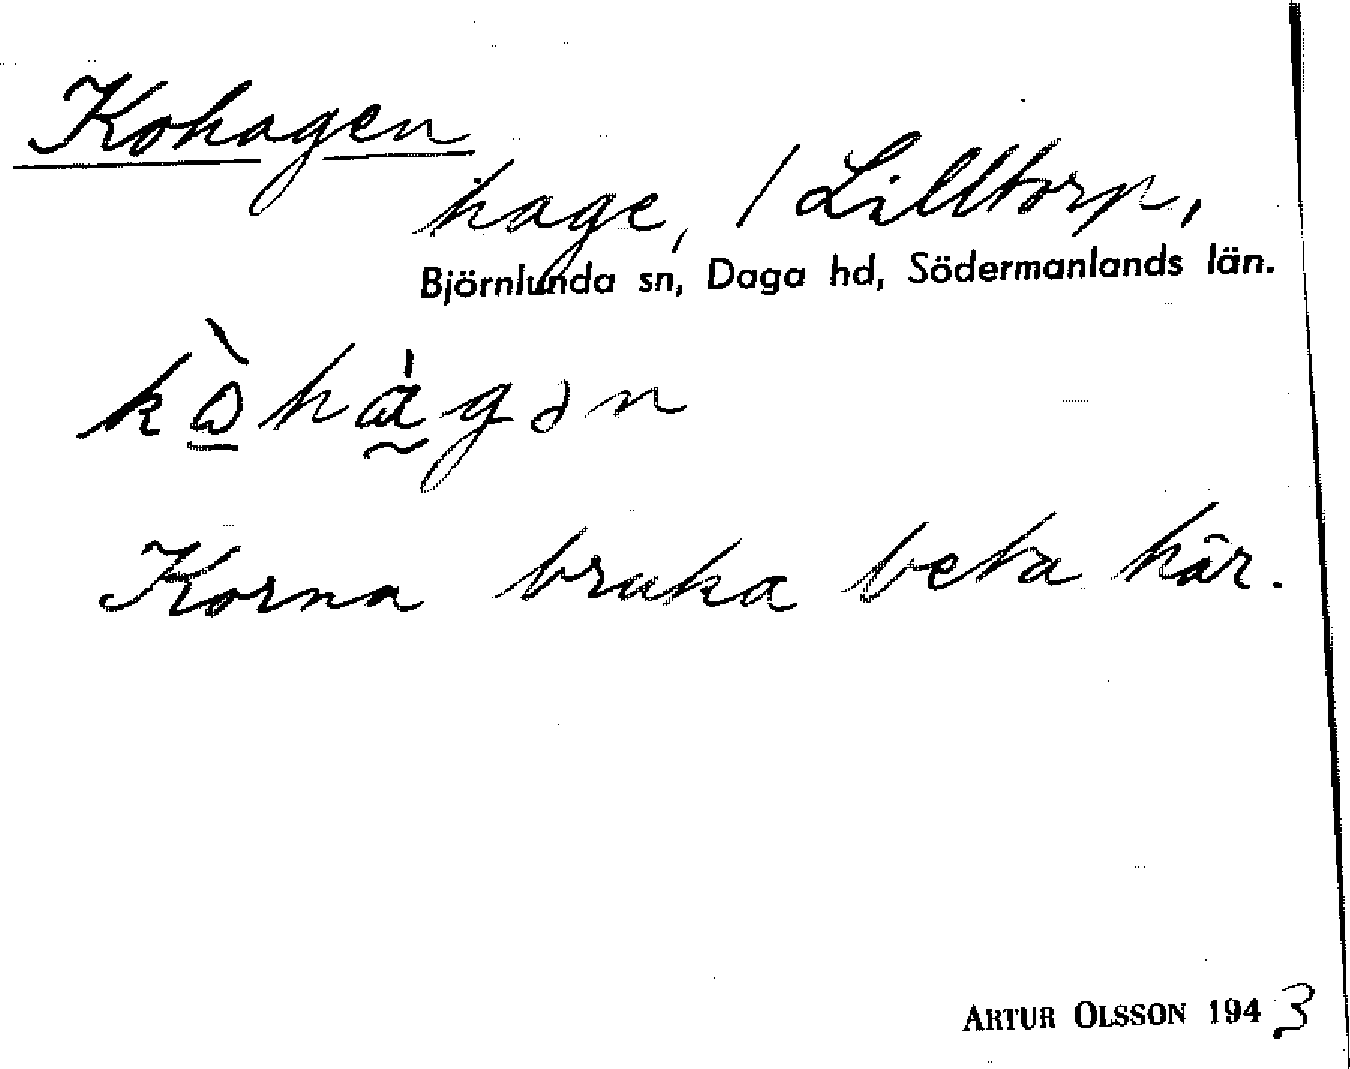 Kohagen
hage, / Lilltorp,
Björnlunda sn, Daga hd, Södermanlands län.
kὼhàgən
Korna bruka beta här.
ARTUR OLSSON 1943